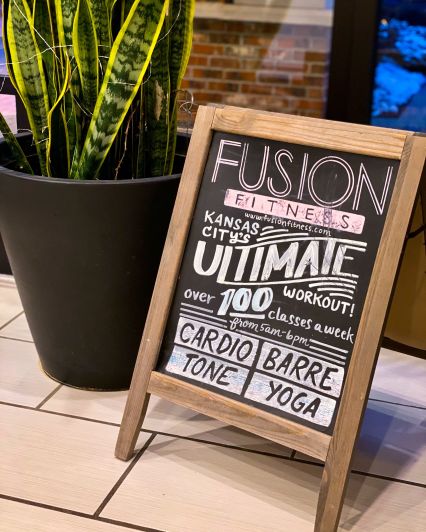 FUSION
FITNESS
www.fusionfitness.com
KANSAS
CITY'S
ULTIMATE
WORKOUT!
over 100 classes a week
from 5am-6pm
CARDIO BARRE
TONE YOGA